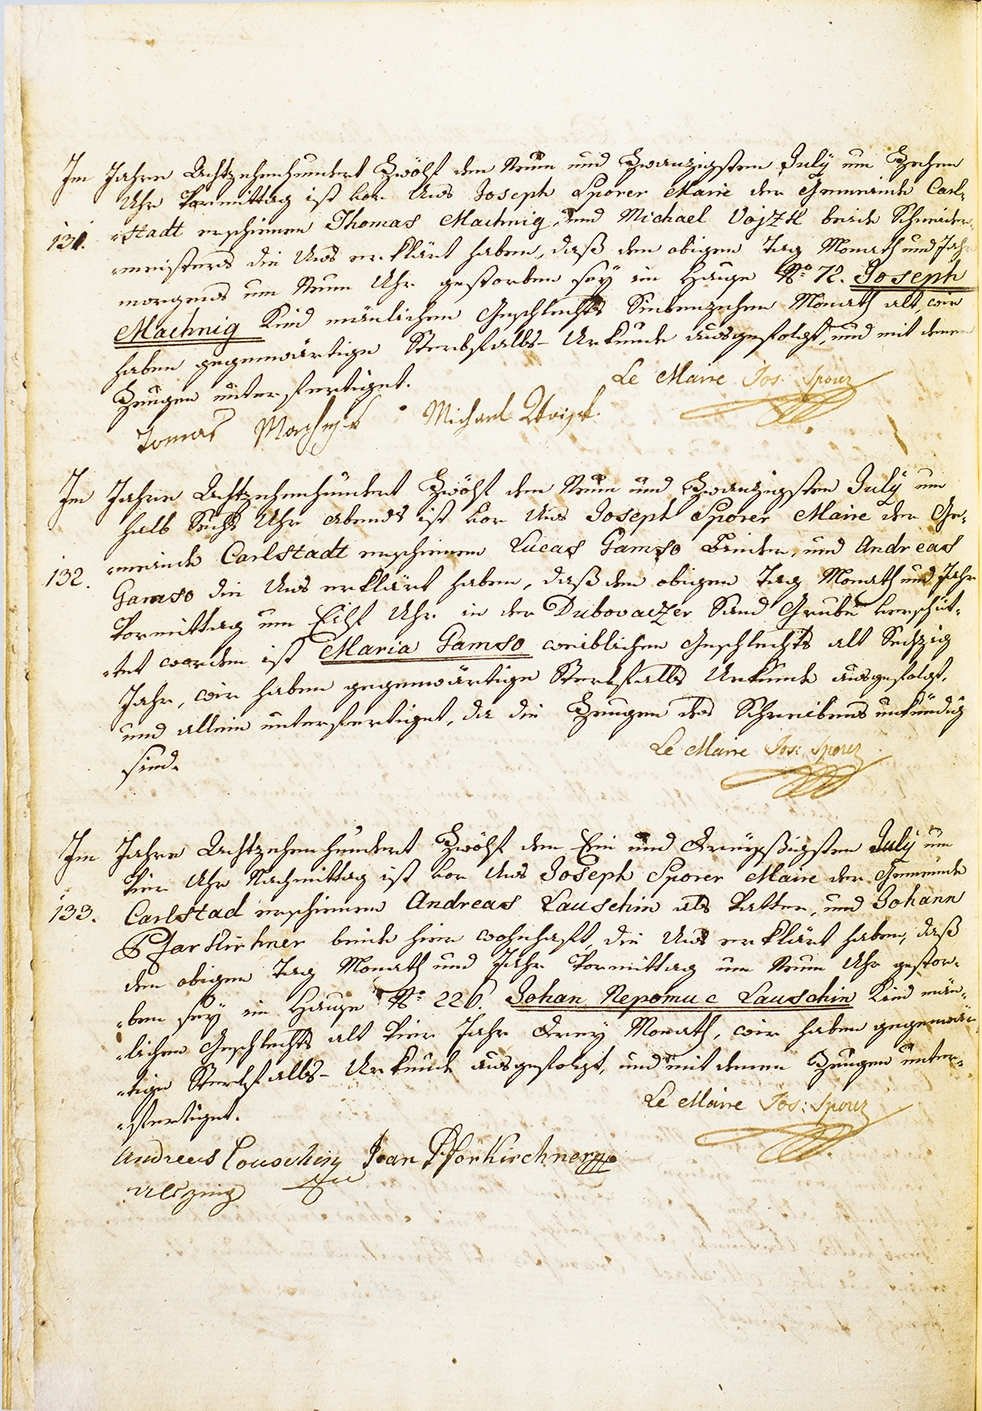 Im Jahre Achtzehenhundert Zwölf den Neun und Zwanzigsten July um Zehen
Uhr Vormittag ist vor Uns Joseph Sporer Maire der Gemeinde Carl-
131. -stadt erschienen Thomas Machnig, und Michael Vojzk beide Schneider-
-meisters die Uns erklärt haben, daß den obigen Tag Monath und Jahr
morgens um Neun Uhr gestorben sey im Hause No 72. Joseph
Machnig Kind mänlichen Geschlechts Siebenzehen Monath alt, wir
haben gegenwärtige Sterbfalls-Urkunde ausgefolgt, und mit denen
Zeugen unterfertiget.
Le Maire Jos: Sporer
Tomas Michael
Im Jahre Achtzehenhundert Zwölf den Neun und Zwanzigsten July um
halb Sechs Uhr Abends ist vor Uns Joseph Sporer Maire der Ge-
-meinde Carlstadt erschienen Lucas Gamso Binder, und Andreas
132. Gamso die Uns erklärt haben, daß den obigen Tag Monath und Jahr
Vormittag um Eilf Uhr in der Dubovaczer Sand Grube verschüt-
-tet worden ist Maria Gamso weiblichen Geschlechts alt Sechzig
Jahr, wir haben gegenwärtige Sterbfalls Urkunde ausgefolgt,
und allein unterfertiget, da die Zeugen des Schreibens unkündig
sind.
Le Maire Jos: Sporer
Im Jahre Achtzehenhundert Zwölf den Ein und Dreyßigsten July um
vier Uhr Nachmittag ist vor Uns Joseph Sporer Maire der Gemeinde
133. Carlstad erschienen Andreas Lauschin als Vatter, und Johann
Pfarkirhner beide hier wohnhaft, die Uns erklärt haben, daß
den obigen Tag Monath und Jahr Vormittag um Neun Uhr gestor-
-ben sey im Hause No 226. Johan Nepomuc Lauschin Kind män-
-lichen Geschlechts alt vier Jahr Drey Monath, wir haben gegenwär-
-tige Sterbfalls-Urkunde ausgefolgt, und mit denen Zeugen unter-
-fertiget.
Le Maire Jos: Sporer
Andreas Louschin Jean Pforkirchner